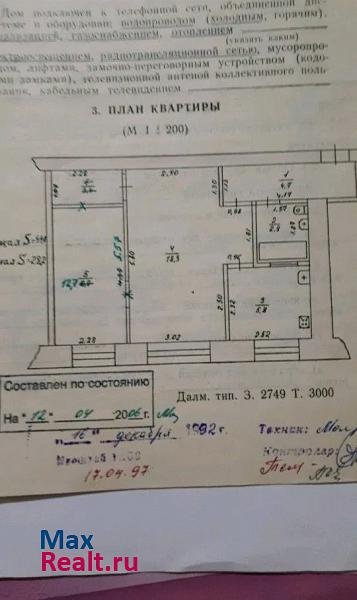 Дом подключен к телефонной сети, объединенной дис-
теме и оборудован: водопроводом (холодным, горячим),
газоснабжением, отоплением
(указать каким)
радиотрансляционной сетью, мусоропро-
дом, лифтами, замочно-переговорным устройством (кодо-
замками), телевизионной антеной коллективного поль-
кабельным телевидением
3. ПЛАН КВАРТИРЫ
(М. 1 : 200)
2.28
2.40
1
4.7
4.14
1.50
1.13
0.88
1.57
2
2.8
1.81
4
18.3
5.57
5.80
4.44
5
12.7
0.96
2.50
2.32
3
5.8
2.28
3.02
2.52
Составлен по состоянию
На "12" 04 2006 г.
Далм. тип. З. 2749 Т. 3000
"16" декабря 1992 г.
Техник:
Контролер:
17.04.97.
Max
Realt.ru